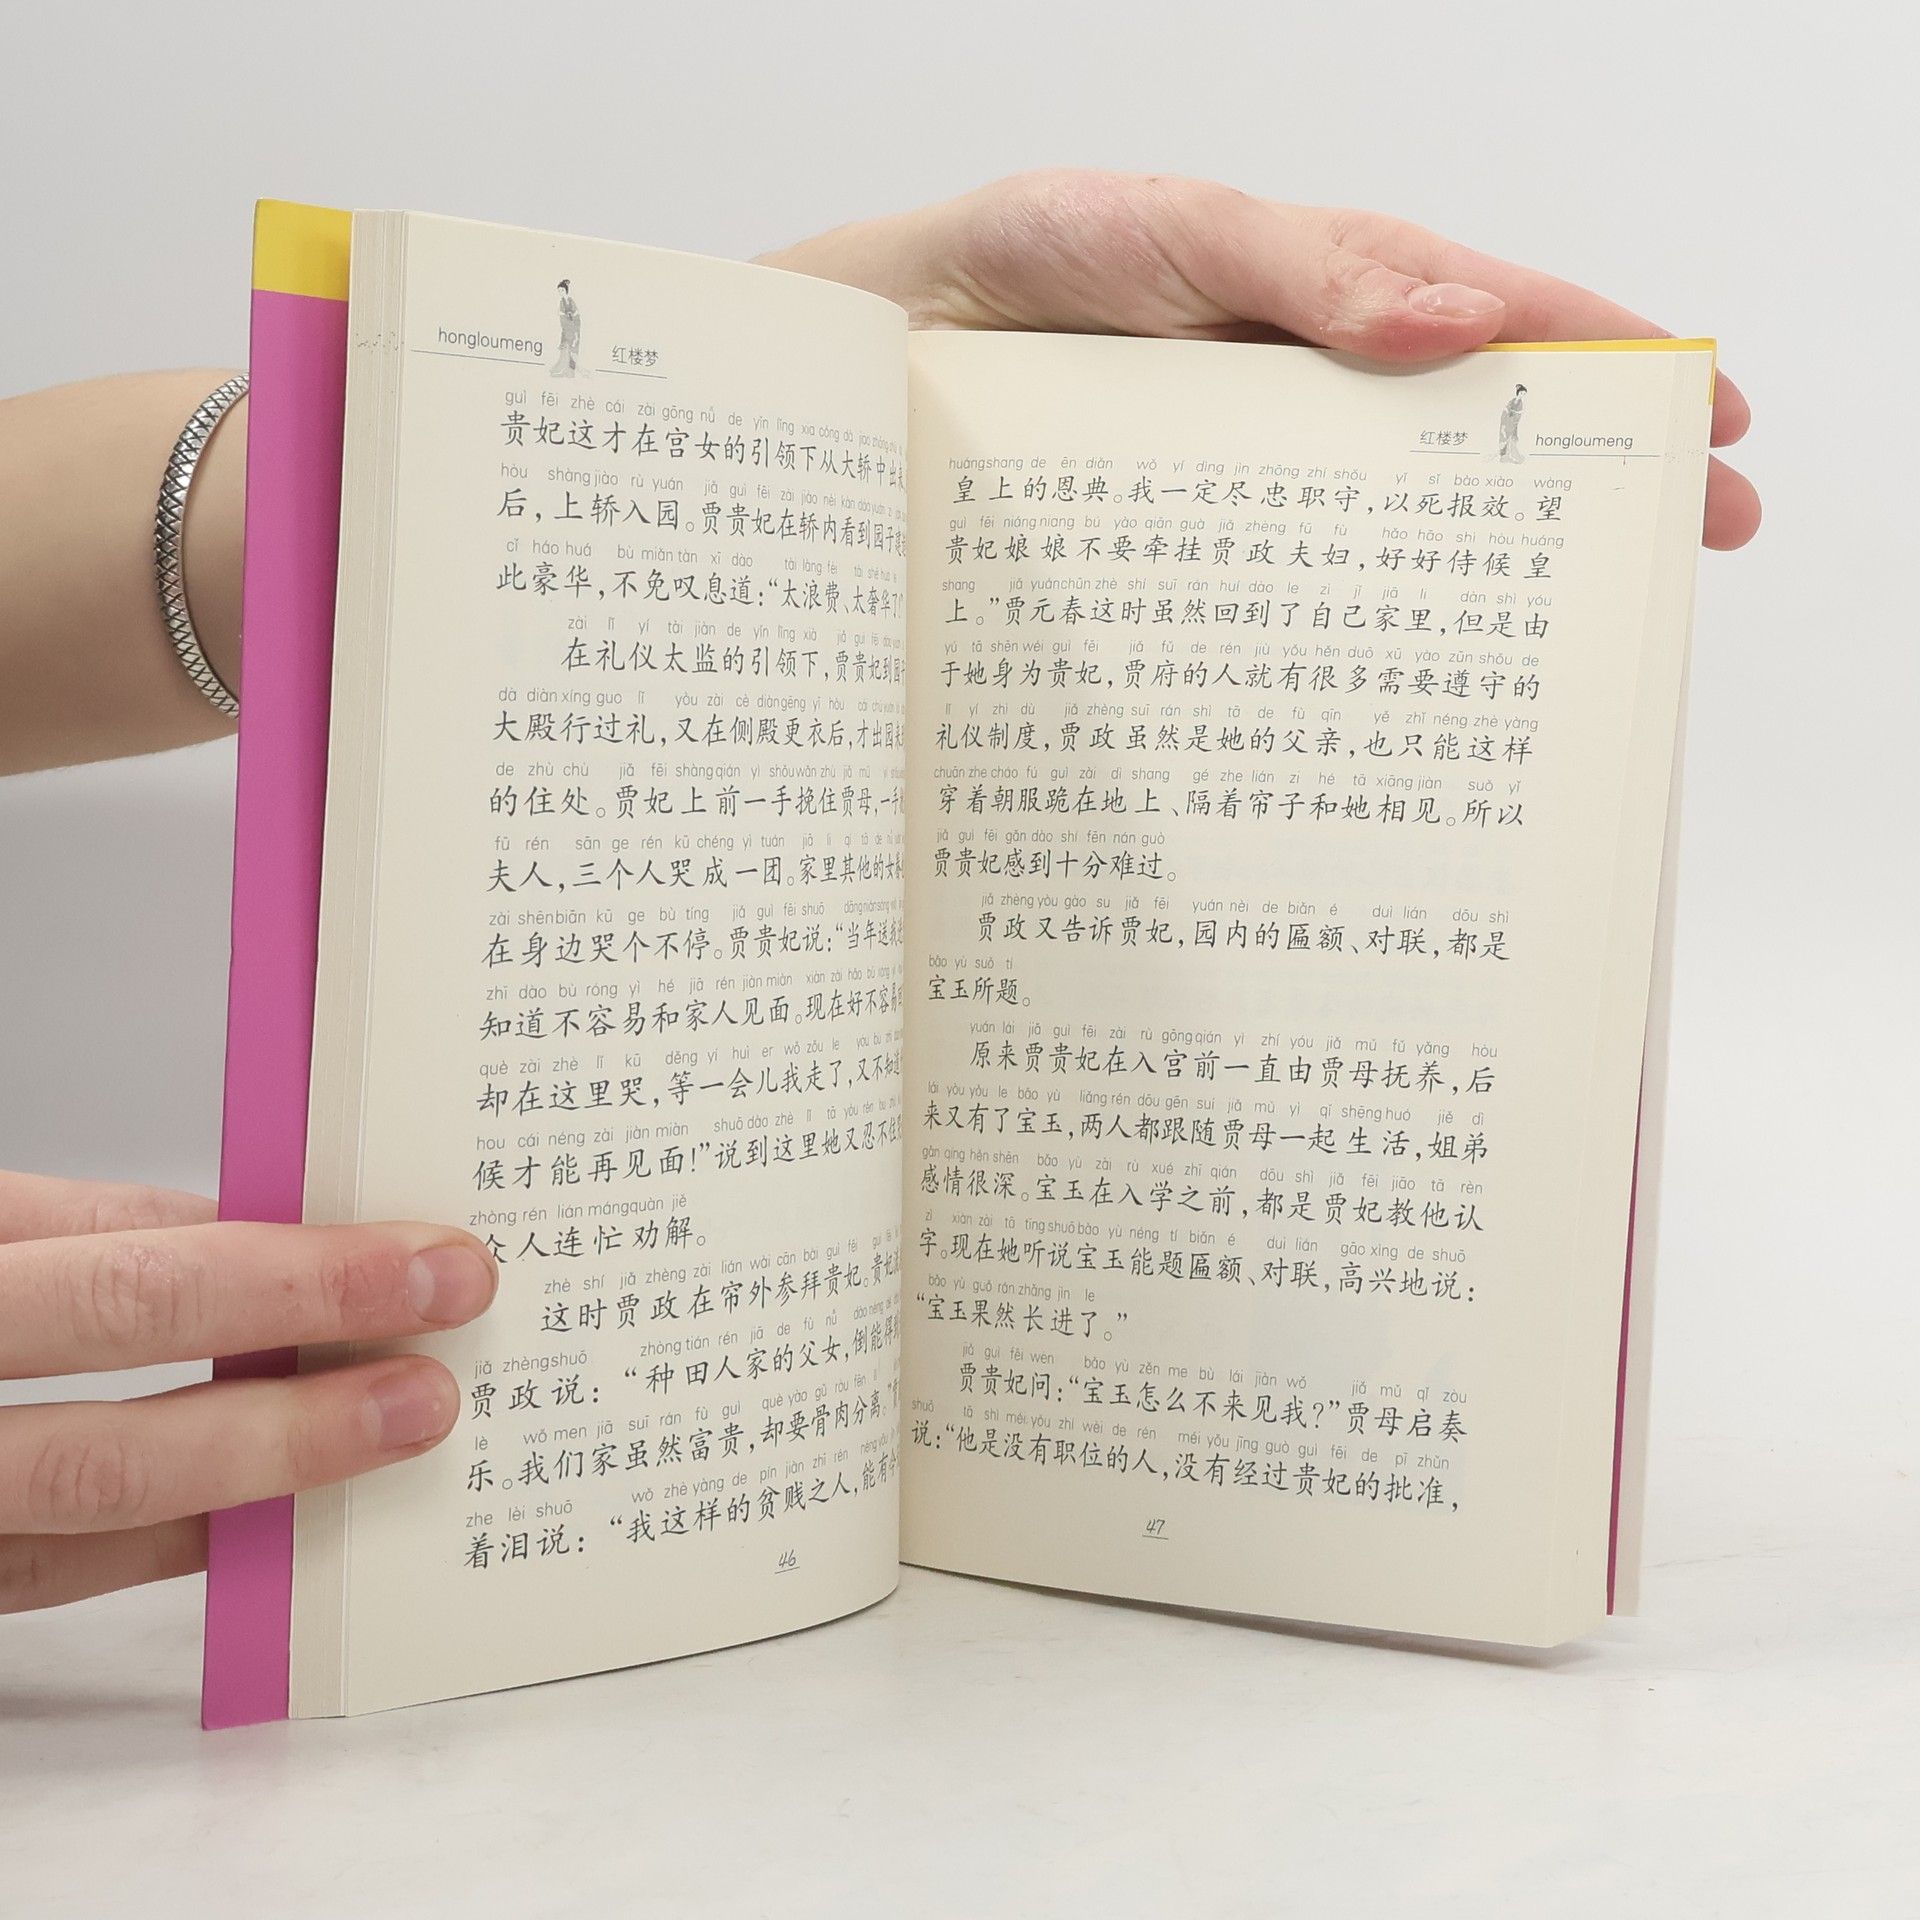 hongloumeng 红楼梦
guì fēi zhè cái zài gōng nǚ de yǐn lǐng xia cóng dà jiào zhōng chū
贵妃这才在宫女的引领下从大轿中出来
hòu shàng jiào rù yuán jiǎ guì fēi zài jiào nèi kàn dào yuán zi
后，上轿入园。贾贵妃在轿内看到园子建造
cǐ háo huá bù miǎn tàn xī dào tài làng fèi tài shē huá le
此豪华，不免叹息道：“太浪费、太奢华了！”
zài lǐ yí tài jiàn de yǐn lǐng xià jiǎ guì fēi dào yuán
在礼仪太监的引领下，贾贵妃到园子
dà diàn xíng guo lǐ yòu zài cè diàn gēng yī hòu cái chū yuán
大殿行过礼，又在侧殿更衣后，才出园来
de zhù chù jiǎ fēi shàng qián yì shǒu wǎn zhù jiǎ mǔ yì shǒu
的住处。贾妃上前一手挽住贾母，一手
fū rén sān ge rén kū chéng yì tuán jiā li qí tā de nǚ
夫人，三个人哭成一团。家里其他的女眷
zài shēn biān kū ge bù tíng jiǎ guì fēi shuō dāng nián sòng wǒ
在身边哭个不停。贾贵妃说：“当年送我进
zhī dào bù róng yì hé jiā rén jiàn miàn xiàn zài hǎo bù róng yì
知道不容易和家人见面。现在好不容易
què zài zhè lǐ kū děng yí huì er wǒ zǒu le yòu bù zhī dào
却在这里哭，等一会儿我走了，又不知道
hou cái néng zài jiàn miàn shuō dào zhè lǐ tā yòu rěn bu zhù
候才能再见面！”说到这里她又忍不住
zhòng rén lián máng quàn jiě
众人连忙劝解。
zhè shí jiǎ zhèng zài lián wài cān bài guì fēi guì fēi
这时贾政在帘外参拜贵妃。贵妃
jiǎ zhèng shuō zhòng tián rén jiā de fù nǚ dào néng dé
贾政说：“种田人家的父女，倒能得
lè wǒ men jiā suī rán fù guì què yào gǔ ròu fēn lí
乐。我们家虽然富贵，却要骨肉分离。”
zhe lèi shuō wǒ zhè yàng de pín jiàn zhī rén néng yǒu jīn
着泪说：“我这样的贫贱之人，能有今
46
红楼梦 hongloumeng
huáng shang de ēn diǎn wǒ yí dìng jìn zhōng zhí shǒu yǐ sǐ bào xiào wàng
皇上的恩典。我一定尽忠职守，以死报效。望
guì fēi niáng niang bú yào qiān guà jiǎ zhèng fū fù hǎo hāo shì hòu huáng
贵妃娘娘不要牵挂贾政夫妇，好好侍候皇
shang jiǎ yuán chūn zhè shí suī rán huí dào le zì jǐ jiā li dàn shì yóu
上。”贾元春这时虽然回到了自己家里，但是由
yú tā shēn wéi guì fēi jiǎ fǔ de rén jiù yǒu hěn duō xū yào zūn shǒu de
于她身为贵妃，贾府的人就有很多需要遵守的
lǐ yí zhì dù jiǎ zhèng suī rán shì tā de fù qīn yě zhǐ néng zhè yàng
礼仪制度，贾政虽然是她的父亲，也只能这样
chuān zhe cháo fú guì zài dì shang gé zhe lián zi hé tā xiāng jiàn suǒ yǐ
穿着朝服跪在地上、隔着帘子和她相见。所以
jiǎ guì fēi gǎn dào shí fēn nán guò
贾贵妃感到十分难过。
jiǎ zhèng yòu gào su jiǎ fēi yuán nèi de biǎn é duì lián dōu shì
贾政又告诉贾妃，园内的匾额、对联，都是
bǎo yù suǒ tí
宝玉所题。
yuán lái jiǎ guì fēi zài rù gōng qián yì zhí yóu jiǎ mǔ fǔ yǎng hòu
原来贾贵妃在入宫前一直由贾母抚养，后
lái yòu yǒu le bǎo yù liǎng rén dōu gēn suí jiǎ mǔ yì qǐ shēng huó jiě dì
来又有了宝玉，两人都跟随贾母一起生活，姐弟
gǎn qíng hěn shēn bǎo yù zài rù xué zhī qián dōu shì jiǎ fēi jiāo tā rèn
感情很深。宝玉在入学之前，都是贾妃教他认
zì xiàn zài tā tīng shuō bǎo yù néng tí biǎn é duì lián gāo xìng de shuō
字。现在她听说宝玉能题匾额、对联，高兴地说：
bǎo yù guǒ rán zhǎng jìn le
“宝玉果然长进了。”
jiǎ guì fēi wèn bǎo yù zěn me bù lái jiàn wǒ jiǎ mǔ qǐ zòu
贾贵妃问：“宝玉怎么不来见我？”贾母启奏
shuō tā shì méi yǒu zhí wèi de rén méi yǒu jīng guò guì fēi de pī zhǔn
说：“他是没有职位的人，没有经过贵妃的批准，
47